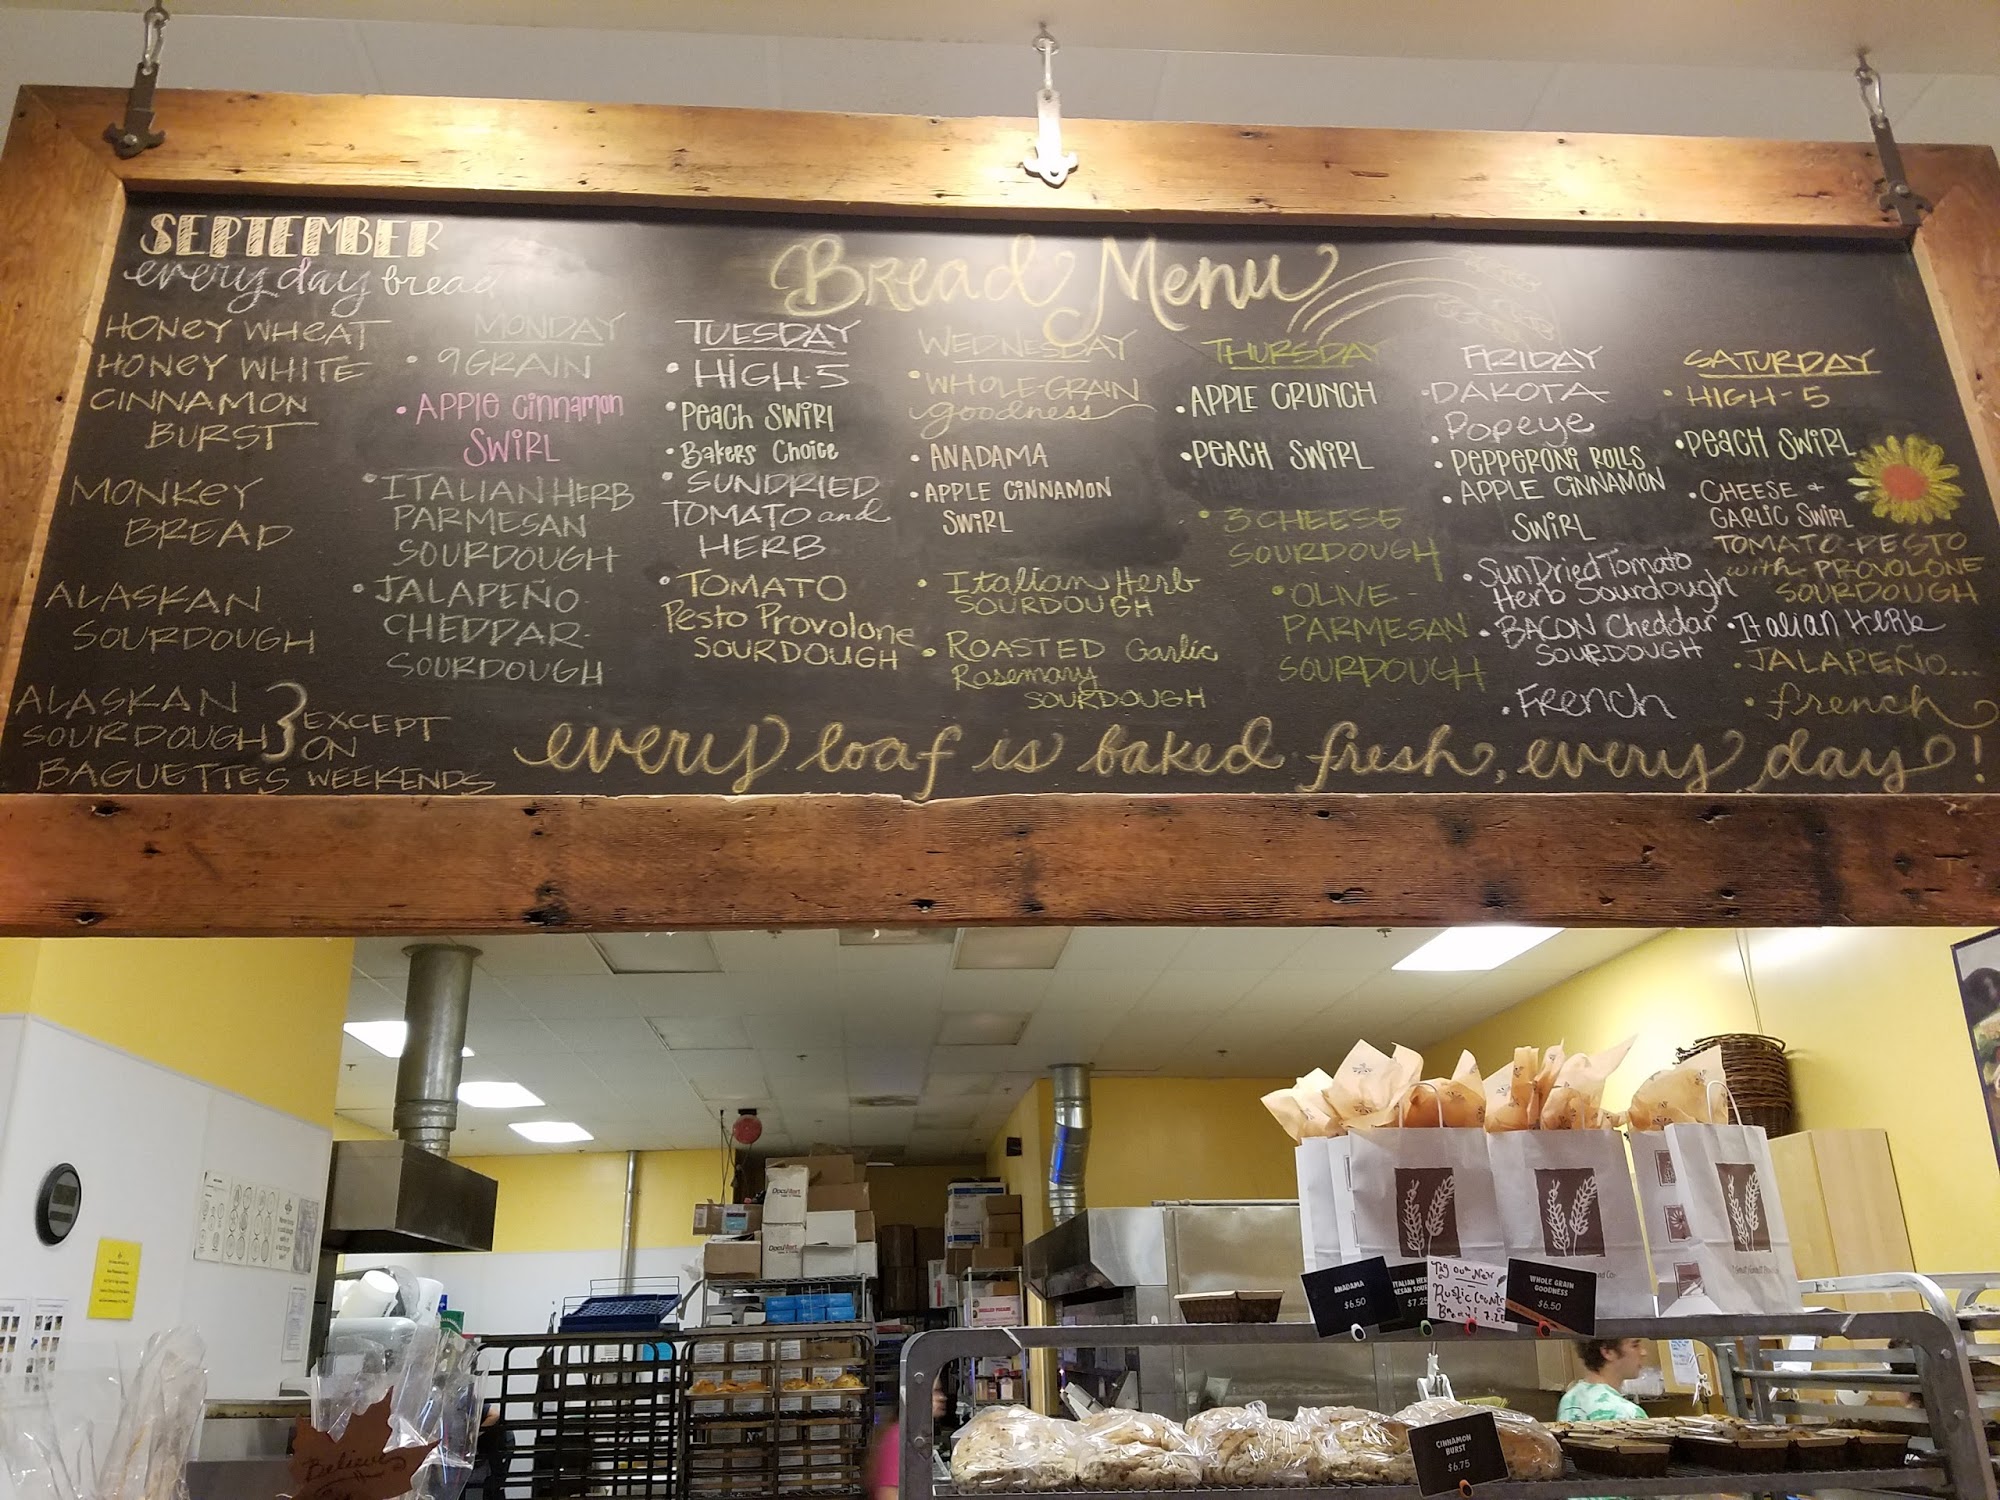 SEPTEMBER
every day bread
HONEY WHEAT
HONEY WHITE
CINNAMON
BURST
MONKEY
BREAD
ALASKAN
SOURDOUGH
ALASKAN
SOURDOUGH
BAGUETTES
EXCEPT
ON
WEEKENDS
Bread Menu
MONDAY
• 9 GRAIN
• APPLE CINNAMON
SWIRL
• ITALIAN HERB
PARMESAN
SOURDOUGH
• JALAPEÑO-
CHEDDAR-
SOURDOUGH
TUESDAY
• HIGH-5
• PEACH SWIRL
• BAKERS CHOICE
• SUNDRIED
TOMATO and
HERB
• TOMATO
Pesto Provolone
SOURDOUGH
WEDNESDAY
• WHOLE-GRAIN
goodness
• ANADAMA
• APPLE CINNAMON
SWIRL
• Italian Herb
SOURDOUGH
• ROASTED Garlic
Rosemary
SOURDOUGH
THURSDAY
• APPLE CRUNCH
• PEACH SWIRL
• 3 CHEESE
SOURDOUGH
• OLIVE-
PARMESAN
SOURDOUGH
FRIDAY
• DAKOTA
• Popeye
• PEPPERONI ROLLS
• APPLE CINNAMON
SWIRL
• Sun Dried Tomato
Herb Sourdough
• BACON Cheddar
SOURDOUGH
• FRENCH
SATURDAY
• HIGH-5
• PEACH SWIRL
• CHEESE +
GARLIC SWIRL
TOMATO-PESTO
with PROVOLONE
SOURDOUGH
• Italian Herb
• JALAPEÑO...
• french
every loaf is baked fresh, every day!
DocuMart
DocuMart
ANADAMA
$6.50
ITALIAN HER
$7.25
Try our New
Rustic
7.25
WHOLE GRAIN
GOODNESS
$6.50
CINNAMON
BURST
$6.75
Believe